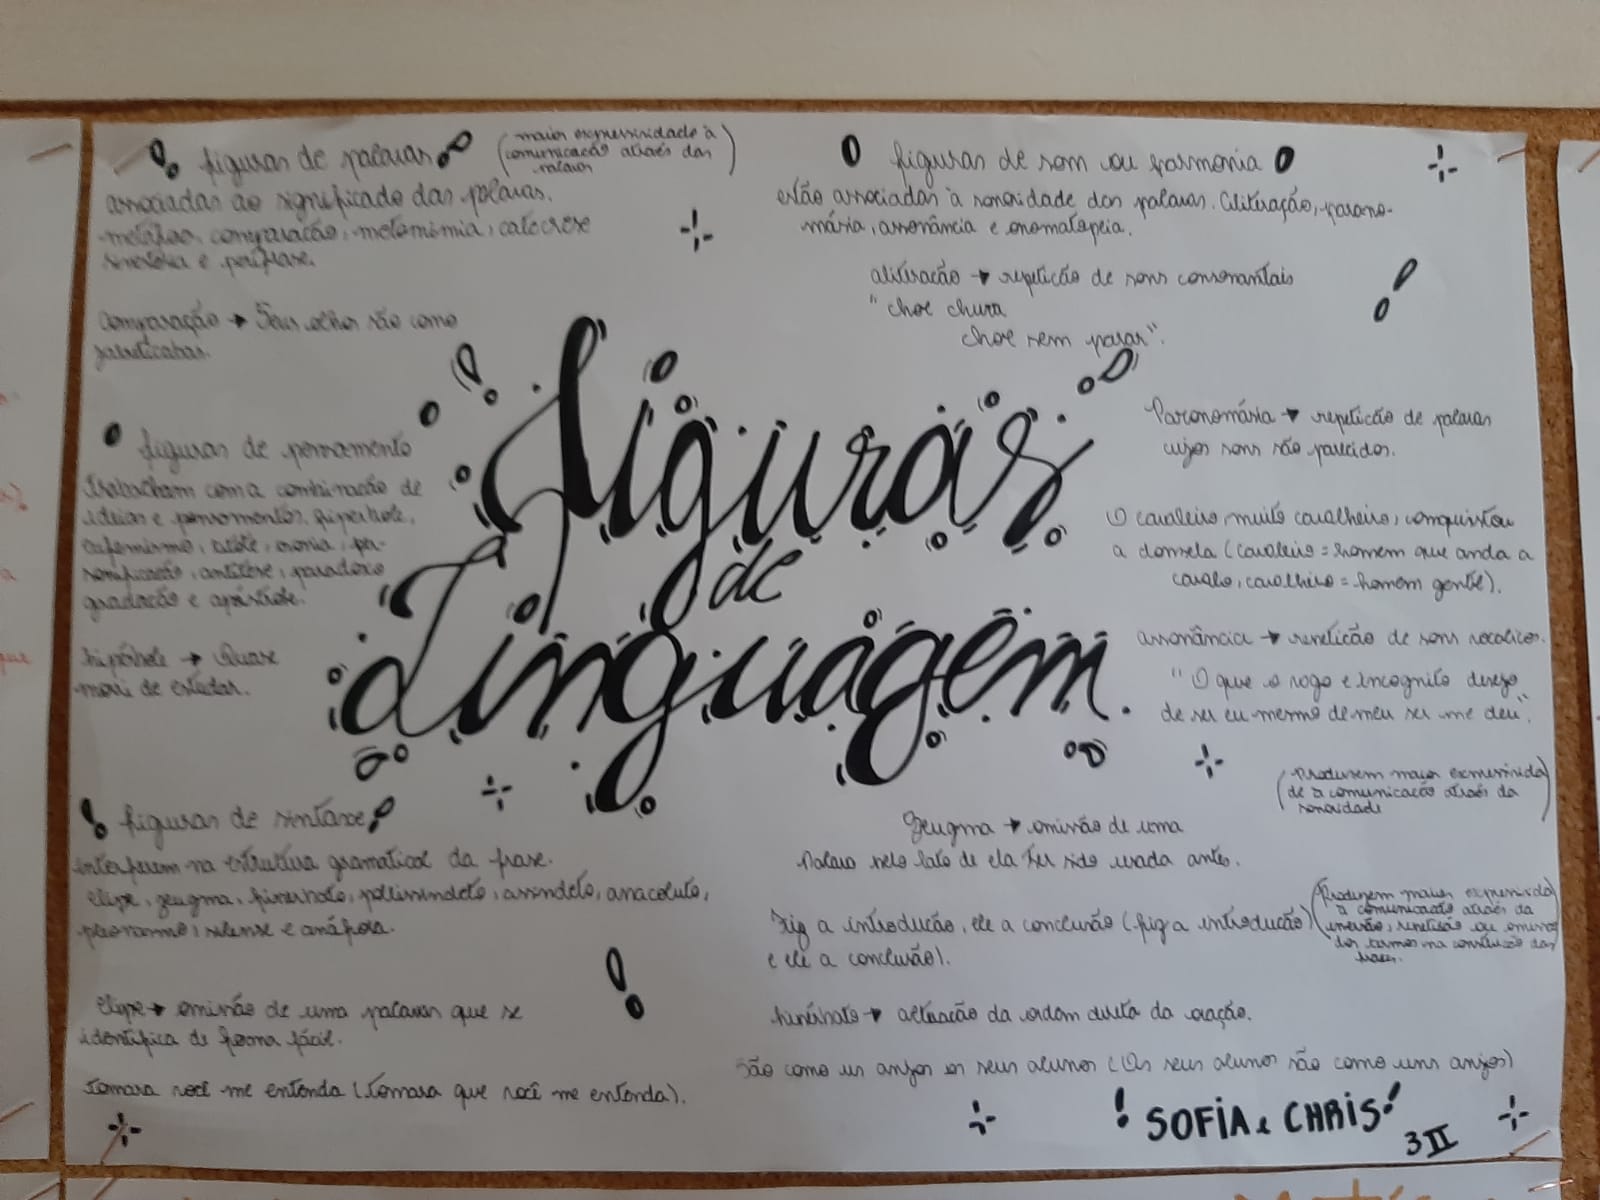 figuras de palavras
(maior expressividade à
comunicação através das
palavras)
associadas ao significado das palavras.
metáfora, comparação, metonímia, catacrese
sinestesia e perífrase.
Comparação → Seus olhos são como
jabuticabas.
figuras de som ou harmonia
estão associadas à sonoridade das palavras. Aliteração, parono-
másia, assonância e onomatopeia.
aliteração → repetição de sons consonantais
"chove chuva
chove sem parar".
Paronomásia → repetição de palavras
cujos sons são parecidos.
O cavaleiro, muito cavalheiro, conquistou
a donzela (cavaleiro = homem que anda a
cavalo, cavalheiro = homem gentil).
assonância → repetição de sons vocálicos.
"O que o vago e incognito desejo
de ser eu mesmo de meu ser me deu".
(Produzem maior expressivida
de à comunicação através da
sonoridade)
figuras de pensamento
Trabalham com a combinação de
ideias e pensamentos. hiperbole,
eufemismo, litote, ironia, pe-
rsonificação, antítese, paradoxo
gradação e apóstrofe.
hipérbole → Quase
morri de estudar.
Figuras
de
Linguagem
figuras de sintaxe
interferem na estrutura gramatical da frase.
elipse, zeugma, hiperbato, polissindeto, assindeto, anacoluto,
pleonasmo, silepse e anáfora.
elipse → omissão de uma palavra que se
identifica de forma fácil.
Tomara você me entenda (Tomara que você me entenda).
Zeugma → omissão de uma
palavra pelo fato de ela ter sido usada antes.
Fiz a introdução, ele a conclusão (fiz a introdução
e ele a conclusão).
(Produzem maior expressivida
à comunicação através da
inversão, repetição ou omissão
dos termos na construção das
frases.
hipérbato → alteração da ordem direta da oração.
São como us anjos os seus alunos (Os seus alunos são como uns anjos)
! SOFIA e CHRIS!
3 II